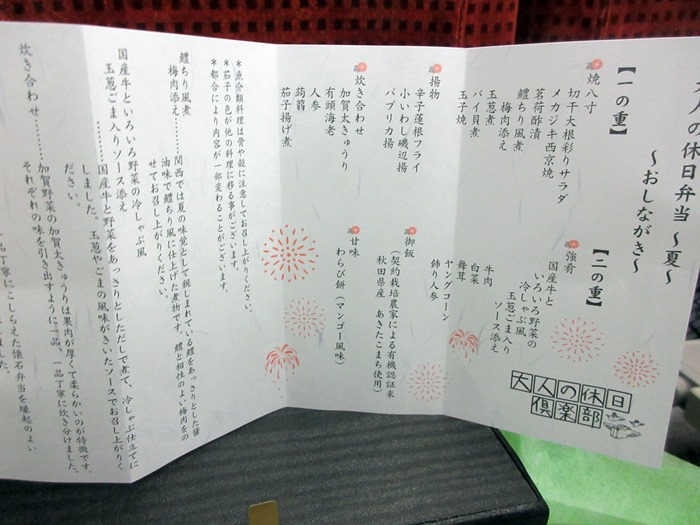 の休日弁当 ～夏～
～おしながき～
【一の重】
焼八寸
切干大根彩りサラダ
メカジキ西京焼
茗荷酢漬
鱧ちり風煮
梅肉添え
玉葱煮
バイ貝煮
玉子焼
揚物
辛子蓮根フライ
小いわし磯辺揚
パプリカ揚
炊き合わせ
加賀太きゅうり
有頭海老
人参
蒟蒻
茄子揚げ煮
【二の重】
強肴
国産牛と
いろいろ野菜の
冷しゃぶ風
玉葱ごま入り
ソース添え
牛肉
白菜
舞茸
ヤングコーン
飾り人参
御飯
(契約栽培農家による有機認証米
秋田県産 あきたこまち使用)
甘味
わらび餅(マンゴー風味)
大人の休日
倶楽部
＊魚介類料理は骨や殻に注意してお召し上がりください。
＊茄子の色が他の料理に移る事がございます。
＊都合により内容が一部変わることがございます。
鱧ちり風煮
梅肉添え………関西では夏の味覚として親しまれている鱧をあっさりとした醤
油味で鱧ちり風に仕上げた煮物です。鱧と相性のよい梅肉をの
せてお召し上がりください。
国産牛といろいろ野菜の冷しゃぶ風
玉葱ごま入りソース添え
………国産牛と野菜をあっさりとしただしで煮て、冷しゃぶ仕立てに
しました。玉葱やごまの風味がきいたソースでお召し上がりく
ださい。
炊き合わせ………加賀野菜の加賀太きゅうりは果肉が厚くて柔らかいのが特徴です。
それぞれの味を引き出すように一品、一品丁寧に炊き分けました。
一品丁寧にこしらえた懐石弁当を縁起のよい